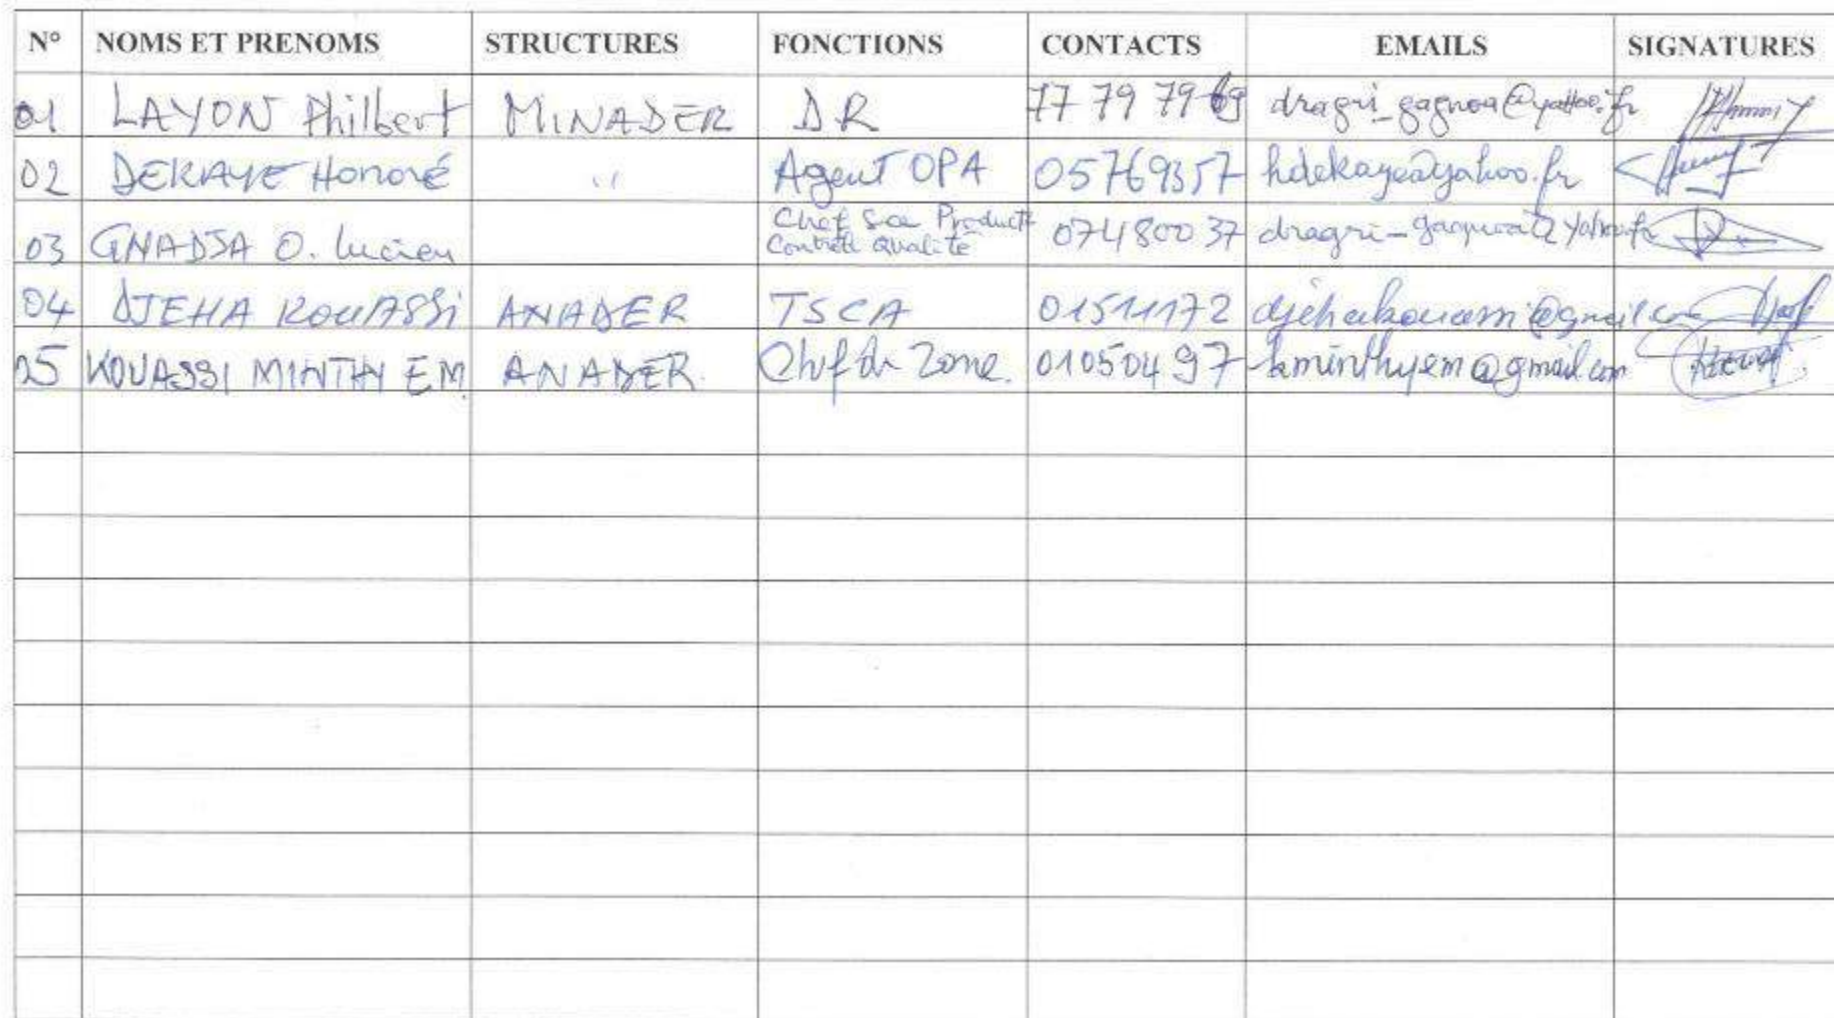 N° NOMS ET PRENOMS STRUCTURES FONCTIONS CONTACTS EMAILS SIGNATURES
01 LAYON Philbert MINADER DR 77 79 79 69 dragri_gagnoa@yahoo.fr
02 DEKAYE Honoré " Agent OPA 05769357 hdekaye@yahoo.fr
03 GNADJA O. Lucien Chef Sce Product 07480037 dragri_gagnoa@yahoo.fr
Contrôle Qualité
04 DJEHA KOUASSI ANADER TSCA 01511172 djehakouassi@gmail.com
05 KOUASSI MINTHY EM ANADER. Chef de Zone. 01050497 kminthyem@gmail.com